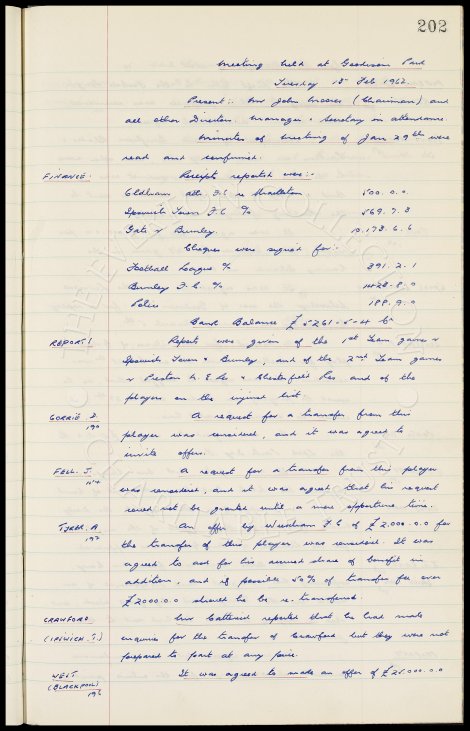 202
Meeting held at Goodison Park
Tuesday Feb 1962.
Present:- Mr John Moores (Chairman) and
all other Directors. Manager & Secretary in attendance
Minutes of meeting of Jan 29th were
read and confirmed.
FINANCE. Receipts reported were:-
Oldham Ath. F.C. re 500.0.0
Ipswich Town F.C. % 569.7.3
Gate v Burnley. 6.6
Cheques were signed for:-
Football League % 391.2.1
Burnley F.C. % 8.0
Police 188.9.0
Bank Balance £5261-5-4
REPORT! Report was given of the 1st Team games v
Ipswich Town & Burnley, and of the 2nd Team games
v Preston N.E. Res & Chesterfield Res and of the
players on the injured list.
GORRIE. D. A request for a transfer from this
190
player was considered, and it was agreed to
invite offers.
FELL. J. A request for a transfer from this player
was considered, and it was agreed that his request
could not be granted until a more opportune time.
TYRER. A An offer by Wrexham F.C. of £2.000.0.0 for
192
the transfer of this player was considered. It was
agreed to ask for his accrued share of benefit in
addition, and if possible 50% of transfer fee over
£2000.0.0 should he be re-transferred.
CRAWFORD Mr Catterick reported that he had made
(IPSWICH.T.) enquiries for the transfer of Crawford but they were not
prepared to part at any price.
WEST It was agreed to make an offer of £25.000.0.0
(BLACKPOOL)